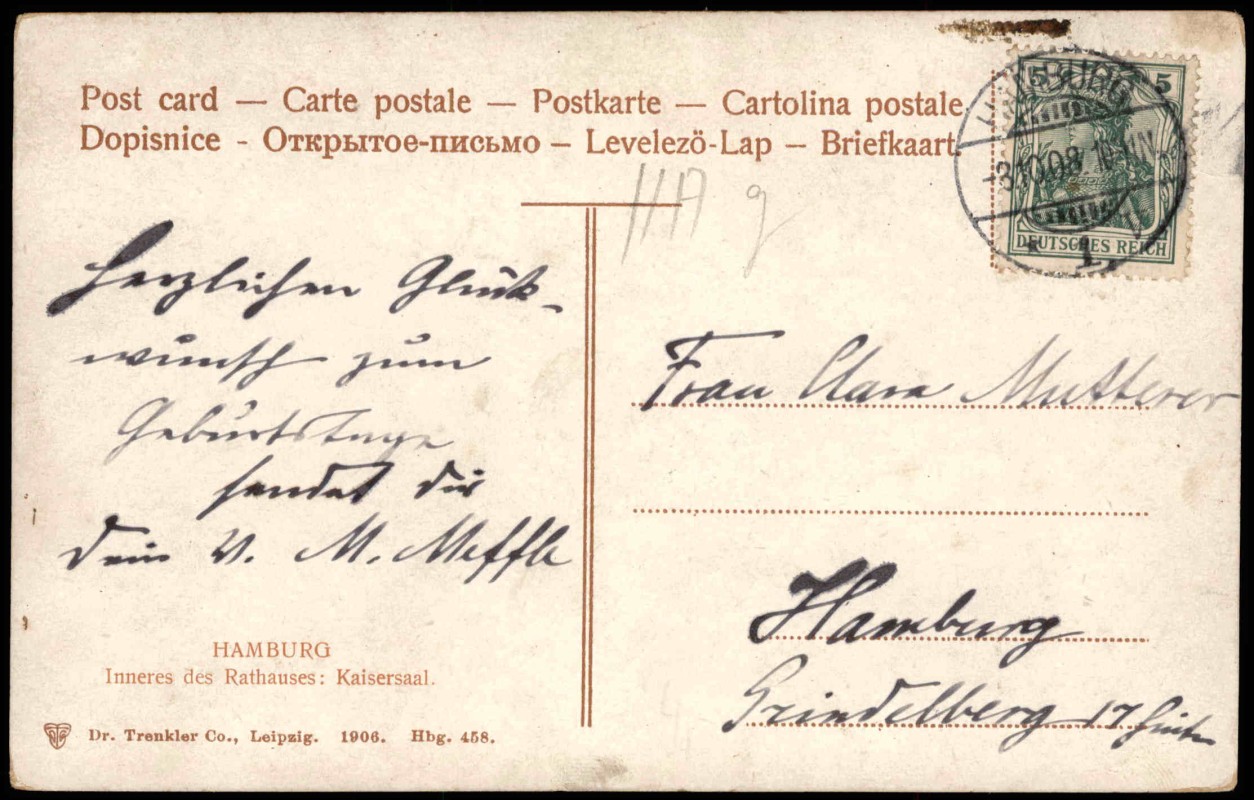 Post card — Carte postale — Postkarte — Cartolina postale.
Dopisnice - Открытое-письмо — Levelező-Lap — Briefkaart.
5 5
HAMBURG
3.10.08
1.
DEUTSCHES REICH
Herzlichen Glück-
wunsch zum
Geburtstage
sendet dir
dein V. M. Meffle
Frau Clara Mutterer
Hamburg
Grindelberg 17
HAMBURG
Inneres des Rathauses: Kaisersaal.
Dr. Trenkler Co., Leipzig. 1906. Hbg. 458.